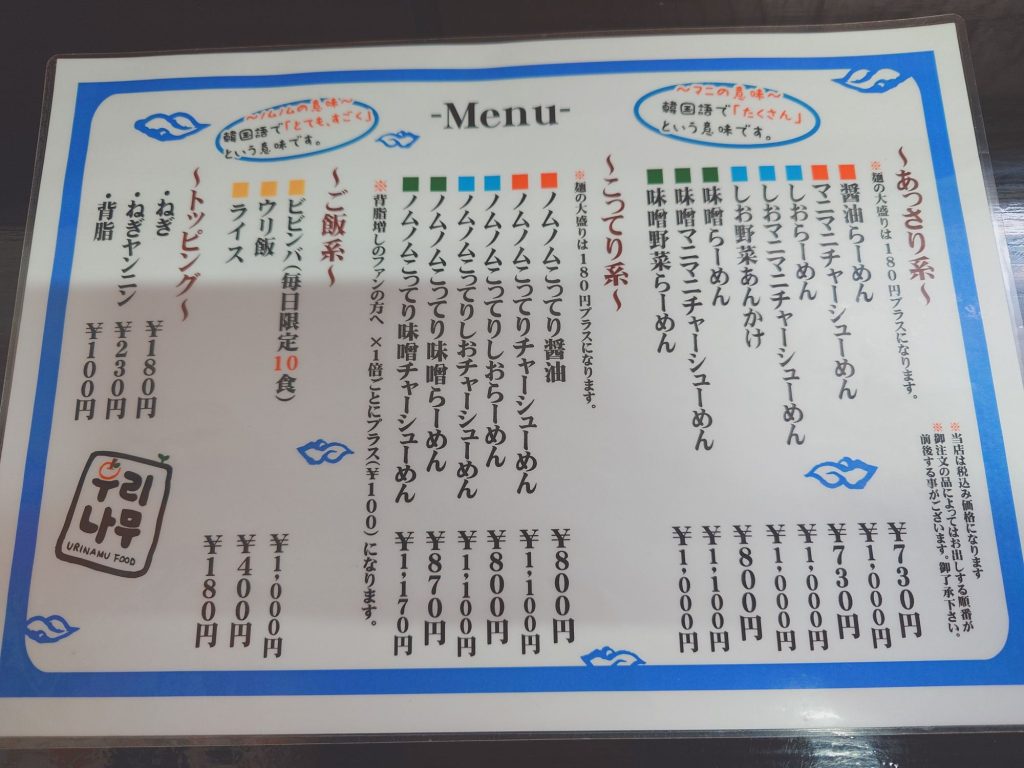 -Menu-
～マニの意味～
韓国語で「たくさん」
という意味です。
～ノムノムの意味～
韓国語で「とても、すごく」
という意味です。
※当店は税込み価格になります
※御注文の品によってはお出しする順番が
前後する事がございます。御了承下さい。
～あっさり系～
※麺の大盛りは180円プラスになります。
醤油らーめん ¥730円
マニマニチャーシューめん ¥1,000円
しおらーめん ¥730円
しおマニマニチャーシューめん ¥1,000円
しお野菜あんかけ ¥1,000円
味噌らーめん ¥800円
味噌マニマニチャーシューめん ¥1,100円
味噌野菜らーめん ¥1,000円
～こってり系～
※麺の大盛りは180円プラスになります。
ノムノムこってり醤油 ¥800円
ノムノムこってりチャーシューめん ¥1,100円
ノムノムこってりしおらーめん ¥800円
ノムノムこってりしおチャーシューめん ¥1,100円
ノムノムこってり味噌らーめん ¥870円
ノムノムこってり味噌チャーシューめん ¥1,170円
※背脂増しのファンの方へ ×1倍ごとにプラス(¥100)になります。
～ご飯系～
ビビンバ(毎日限定10食) ¥1,000円
ウリ飯 ¥400円
ライス ¥180円
～トッピング～
・ねぎ ¥180円
・ねぎヤンニン ¥230円
・背脂 ¥100円
우리
나무
URINAMU FOOD